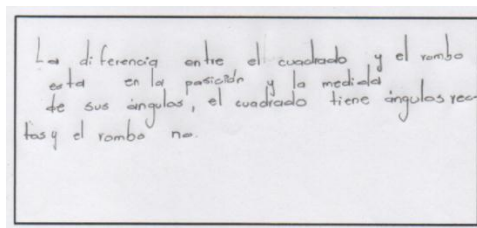 La diferencia entre el cuadrado y el rombo
esta en la posición y la medida
de sus ángulos, el cuadrado tiene ángulos rec-
tos y el rombo no.